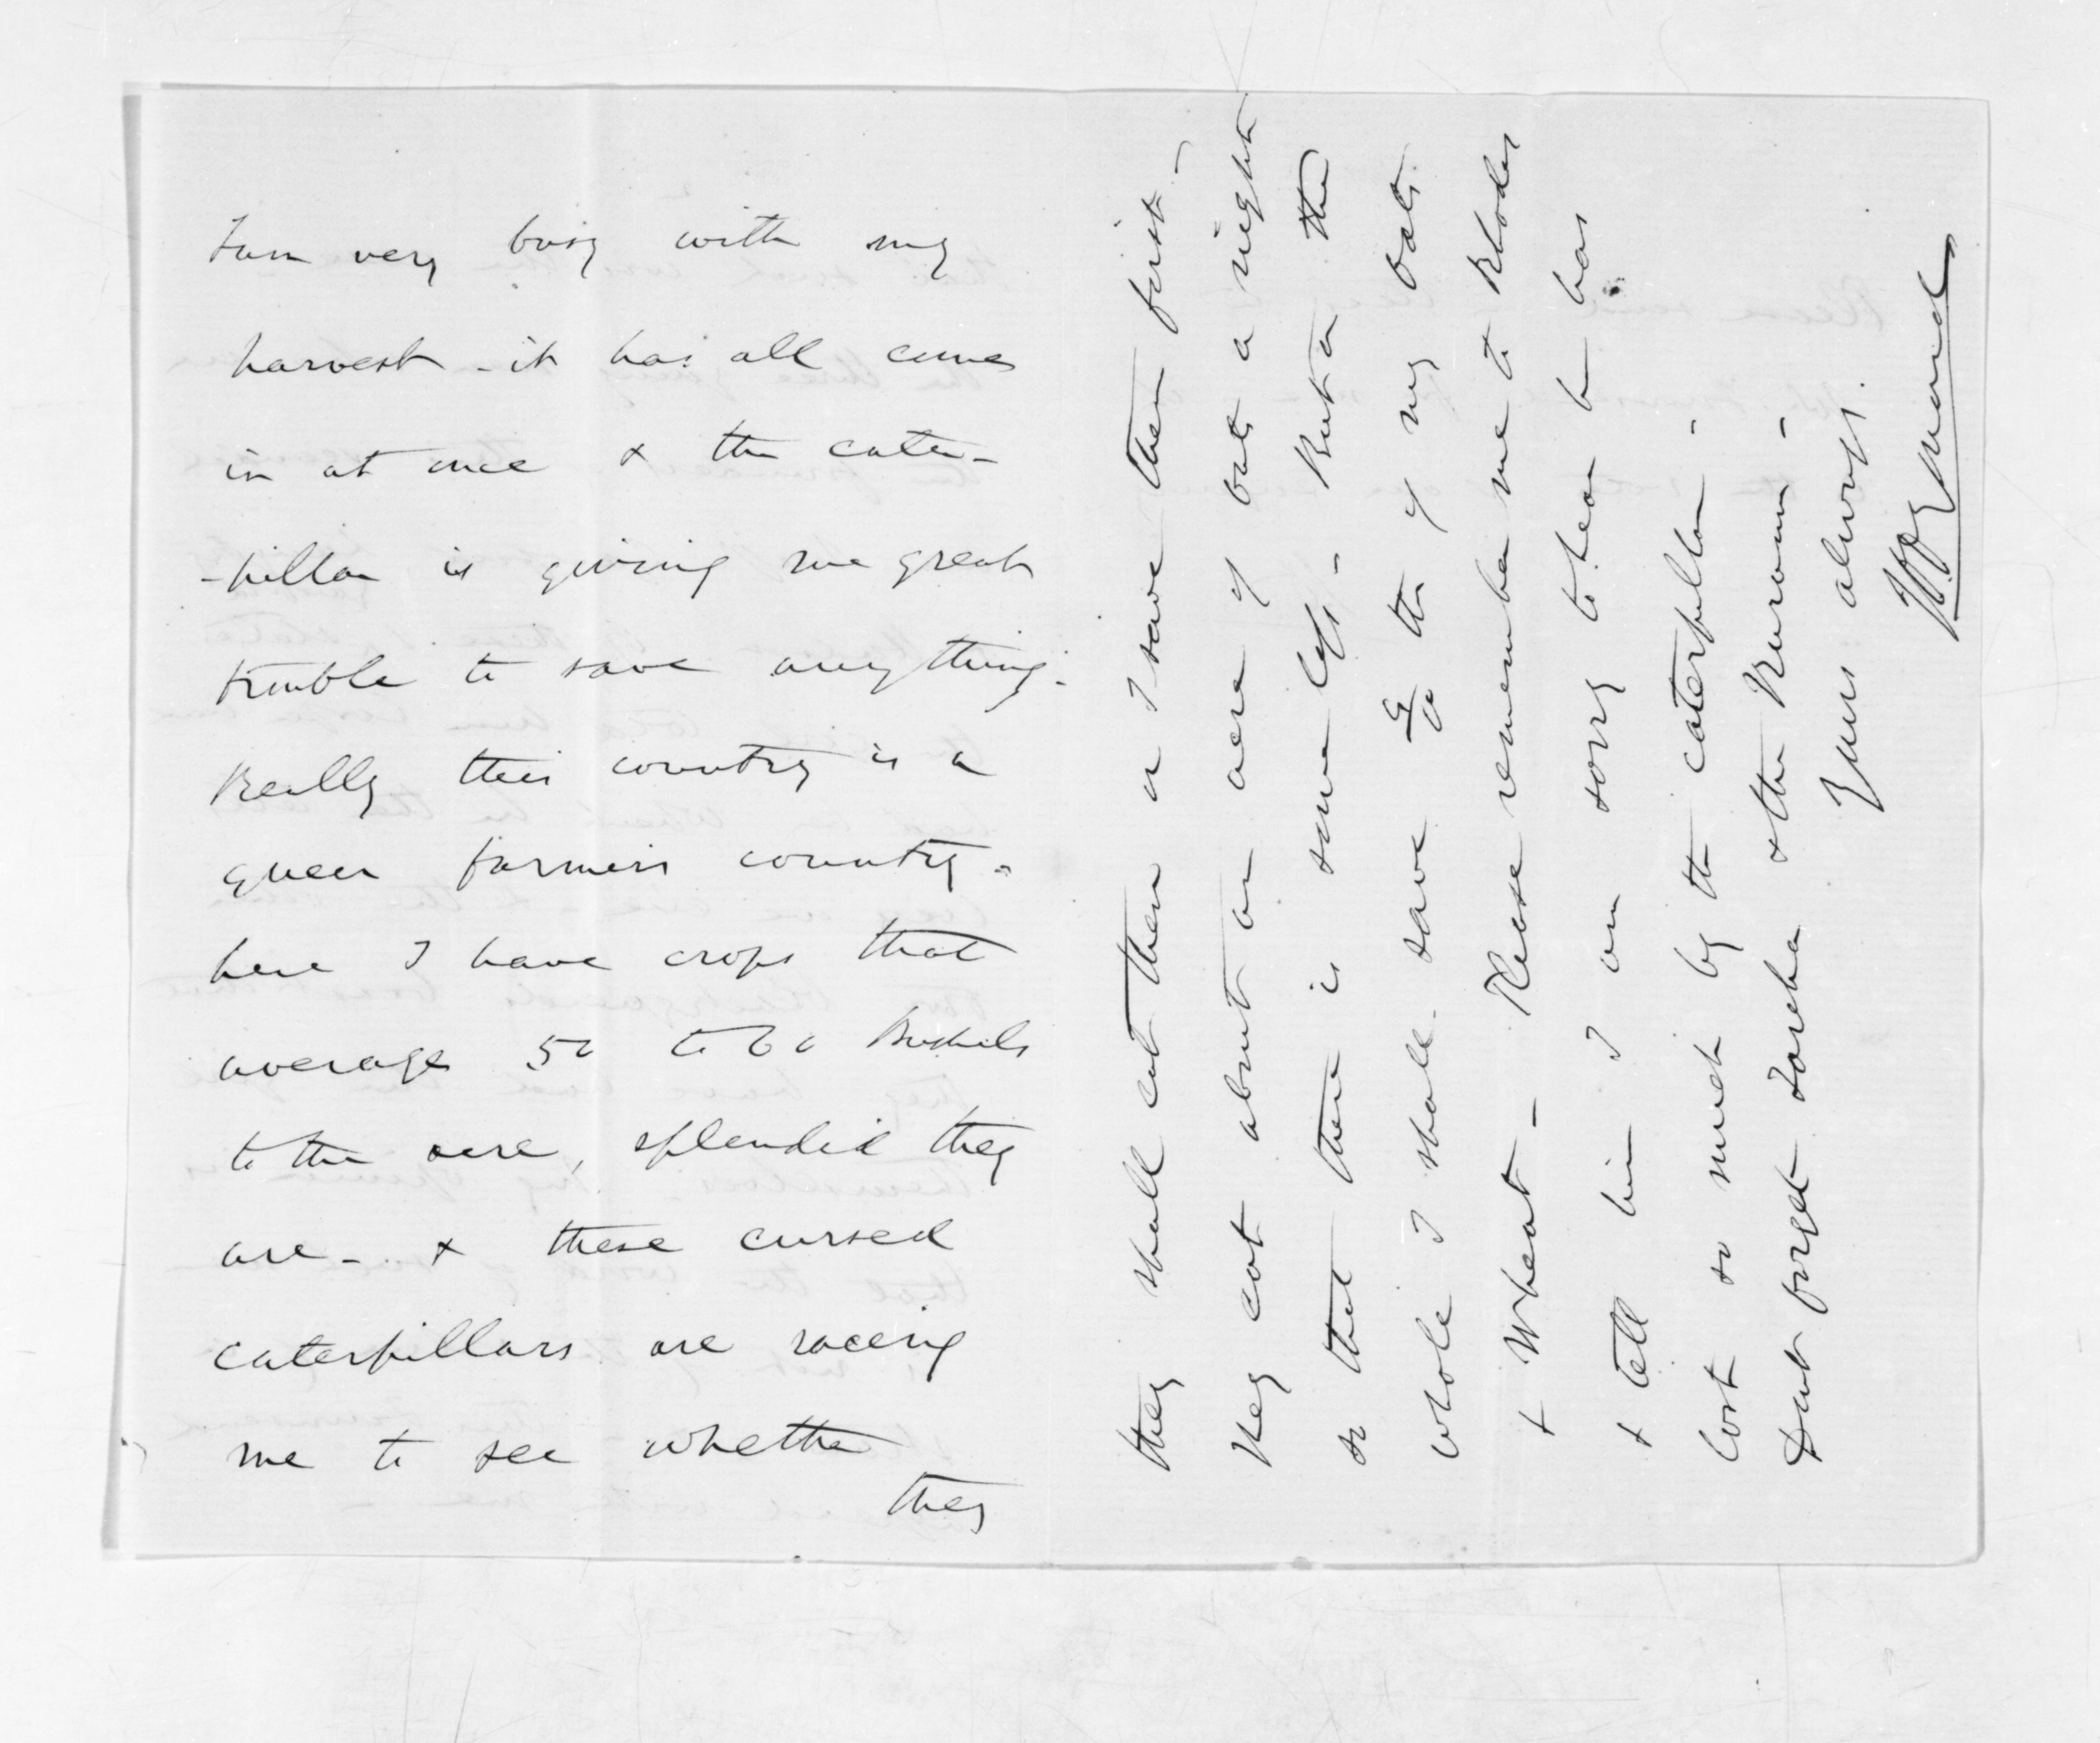 I am very busy with my
harvest - it has all come
in at once & the cater-
-pillar is giving me great
trouble to save anything -
Really this country is a
queer farmers country -
here I have crops that
average 50 to 60 Bushels
to the acre, splendid they
are - & these cursed
caterpillars are racing
me to see whether
they
they shall cut them or I save them first -
they cut about an acre of oats a night
so that there is some loss - But on the
whole I shall save 9/10 ths of my oats
& Wheat - Please remember me to Rhodes
& tell him I am sorry to hear he has
lost so much by the caterpillar -
Dont forget Tareha & the Runanga -
Yours always.